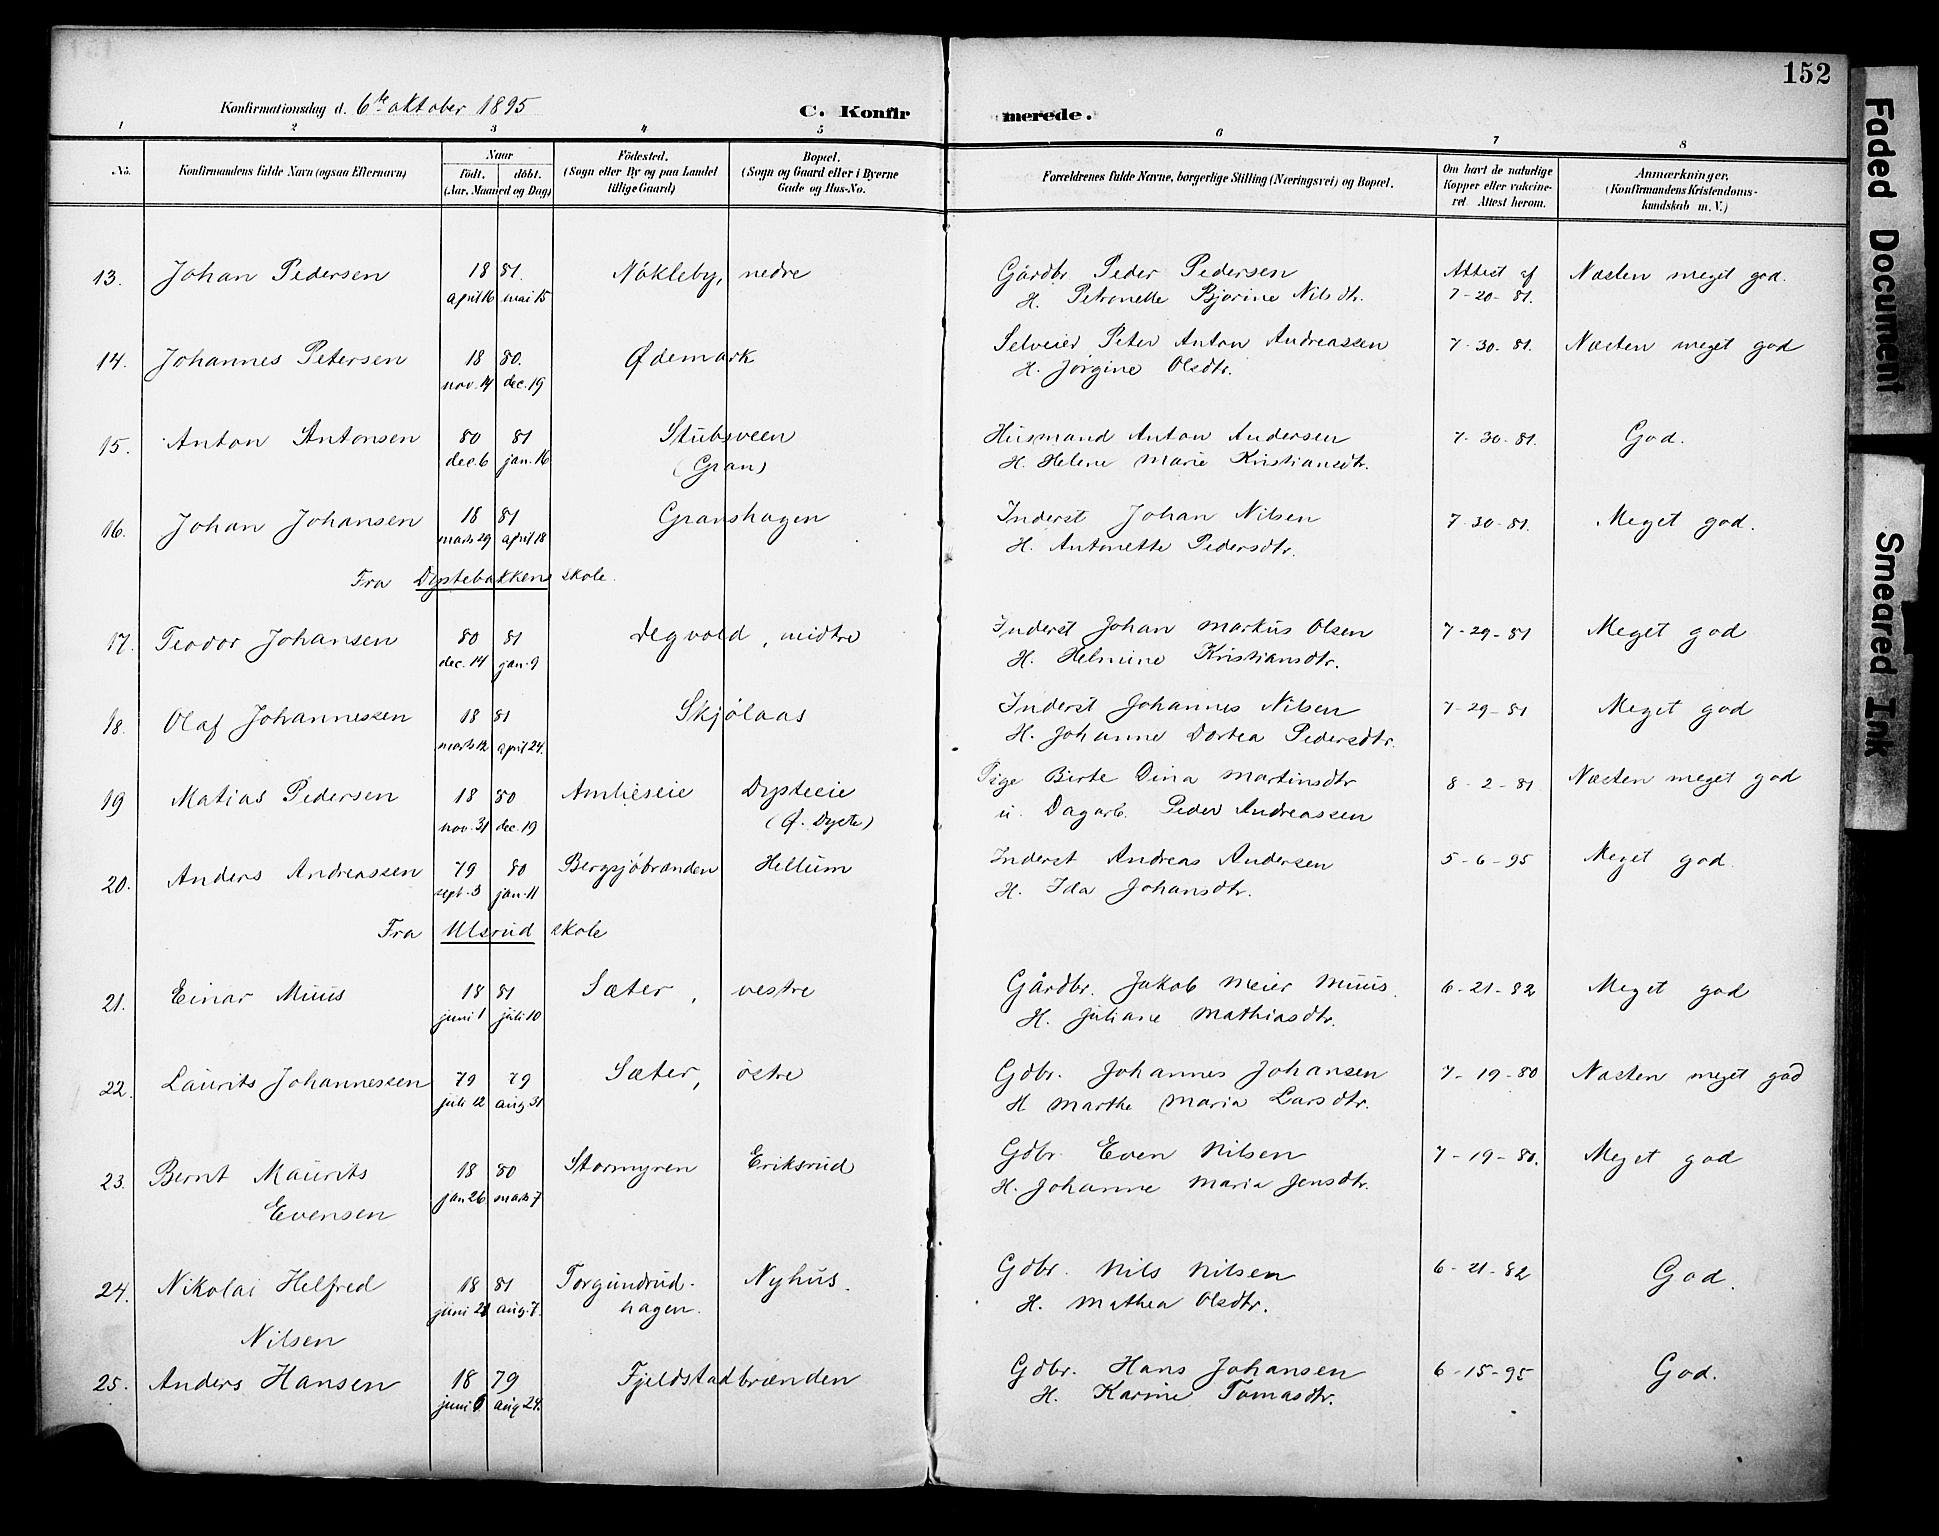 152
Konfirmationsdag d. 6te oktober 1895
C. Konfirmerede.
1 2 3 4 5 6 7 8
No. Konfirmandens fulde Navn (ogsaa Efternavn) Naar Født. døbt. (Aar, Maaned og Dag) Fødested. (Sogn eller By og paa Landet tillige Gaard) Bopæl. (Sogn og Gaard eller i Byerne Gade og Hus-No. Forældrenes fulde Navne, borgerlige Stilling (Næringsvei) og Bopæl. Om havt de naturlige Kopper eller vakcineret. Attest herom. Anmærkninger. (Konfirmandens Kristendomskundskab m. V.)
13. Johan Pedersen 18 81. Nøkleby, nedre Gårdbr. Peder Pedersen Attest af Næsten meget god.
april 16 mai 15 H. Petronelle Bjørine Nilsdtr. 7-20-81.
14. Johannes Petersen 18 80. Ødemark Selveier Peter Anton Andreassen 7-30-81. Næsten meget god
nov. 14 dec. 19 H. Jørgine Olsdtr.
15. Anton Antonsen 80 81 Stubsveen Husmand Anton Andersen 7-30-81. God.
dec. 6 jan. 16 (Gran) H. Helene Marie Kristiansdtr.
16. Johan Johansen 18 81 Granshagen Inderst Johan Nilsen 7-30-81. Meget god.
marts 29 april 18 H. Antonette Pedersdtr.
Fra Dystebakkens skole.
17. Teodor Johansen 80 81 Degvold, midtre Inderst Johan Markus Olsen 7-29-81 Meget god
dec. 14 jan. 9 H. Helmine Kristiansdtr.
18. Olaf Johannessen 18 81 Skjølaas Inderst Johannes Nilsen 7-29-81 Meget god
marts 12 april 24. H. Johanne Dortea Pedersdtr.
19 Matias Pedersen 18 80 Amlieseie Dysteeie Pige Birte Dina Martinsdtr 8-2-81 Næsten meget god
nov. 31 dec. 19 (Ø. Dyste) u. Dagarb. Peder Andreassen
20. Anders Andreassen 79 80 Bergsjøbrænden Hellum Inderst Andreas Andersen 5-6-95 Meget god.
sept. 3 jan. 11 H. Ida Johansdtr.
Fra Ulsrud skole
21. Einar Muus 18 81 Sæter, vestre Gårdbr. Jakob Meier Muus. 6-21-82 Meget god
juni 1 juli 10 H. Juliane Mathiasdtr.
22. Laurits Johannessen 79 79 Sæter, østre Gdbr. Johannes Johansen 7-19-80 Næsten meget god
juli 12 aug. 31 H Marthe Maria Larsdtr.
23. Bernt Maurits 18 80 Stormyren Eriksrud Gdbr. Even Nilsen 7-19-80. Meget god
Evensen jan 26 marts 7 H. Johanne Maria Jensdtr.
24. Nikolai Helfred 18 81 Torgundrud- Nyhus. Gdbr. Nils Nilsen 6-21-82 God.
juni 21 aug. 7. hagen. H. Mathea Olsdtr.
Nilsen
25. Anders Hansen 18 79 Fjeldstadbrænden Gdbr. Hans Johansen 6-15-95 God.
juni 6 aug 24. H. Karine Tomasdtr.
Faded Document
Smeared Ink